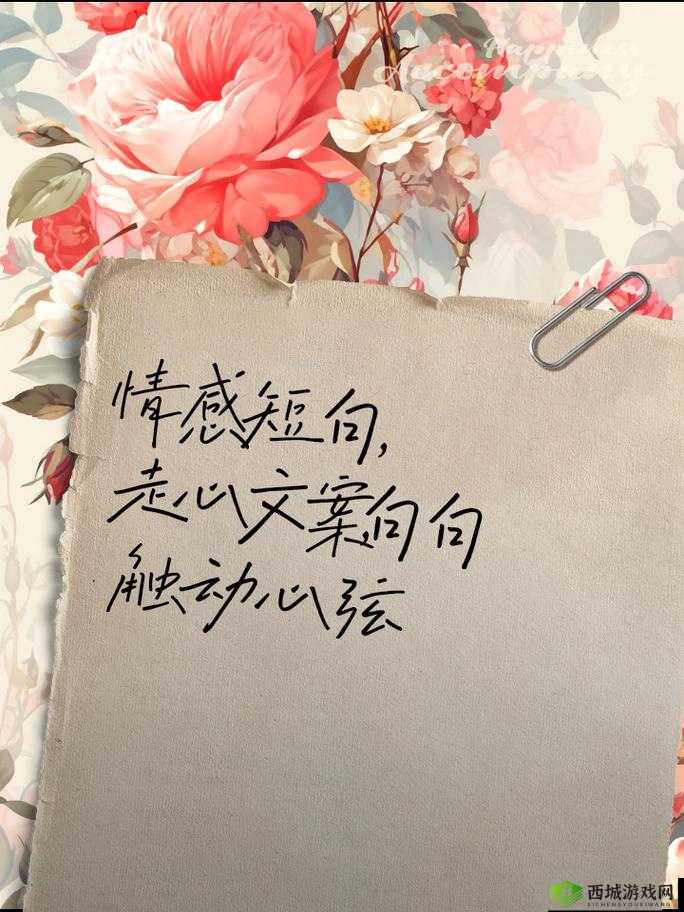 Happiness
Accompany
情感短句,
走心文案,句句
触动心弦
西城游戏网
XICHENGYOUXIWANG